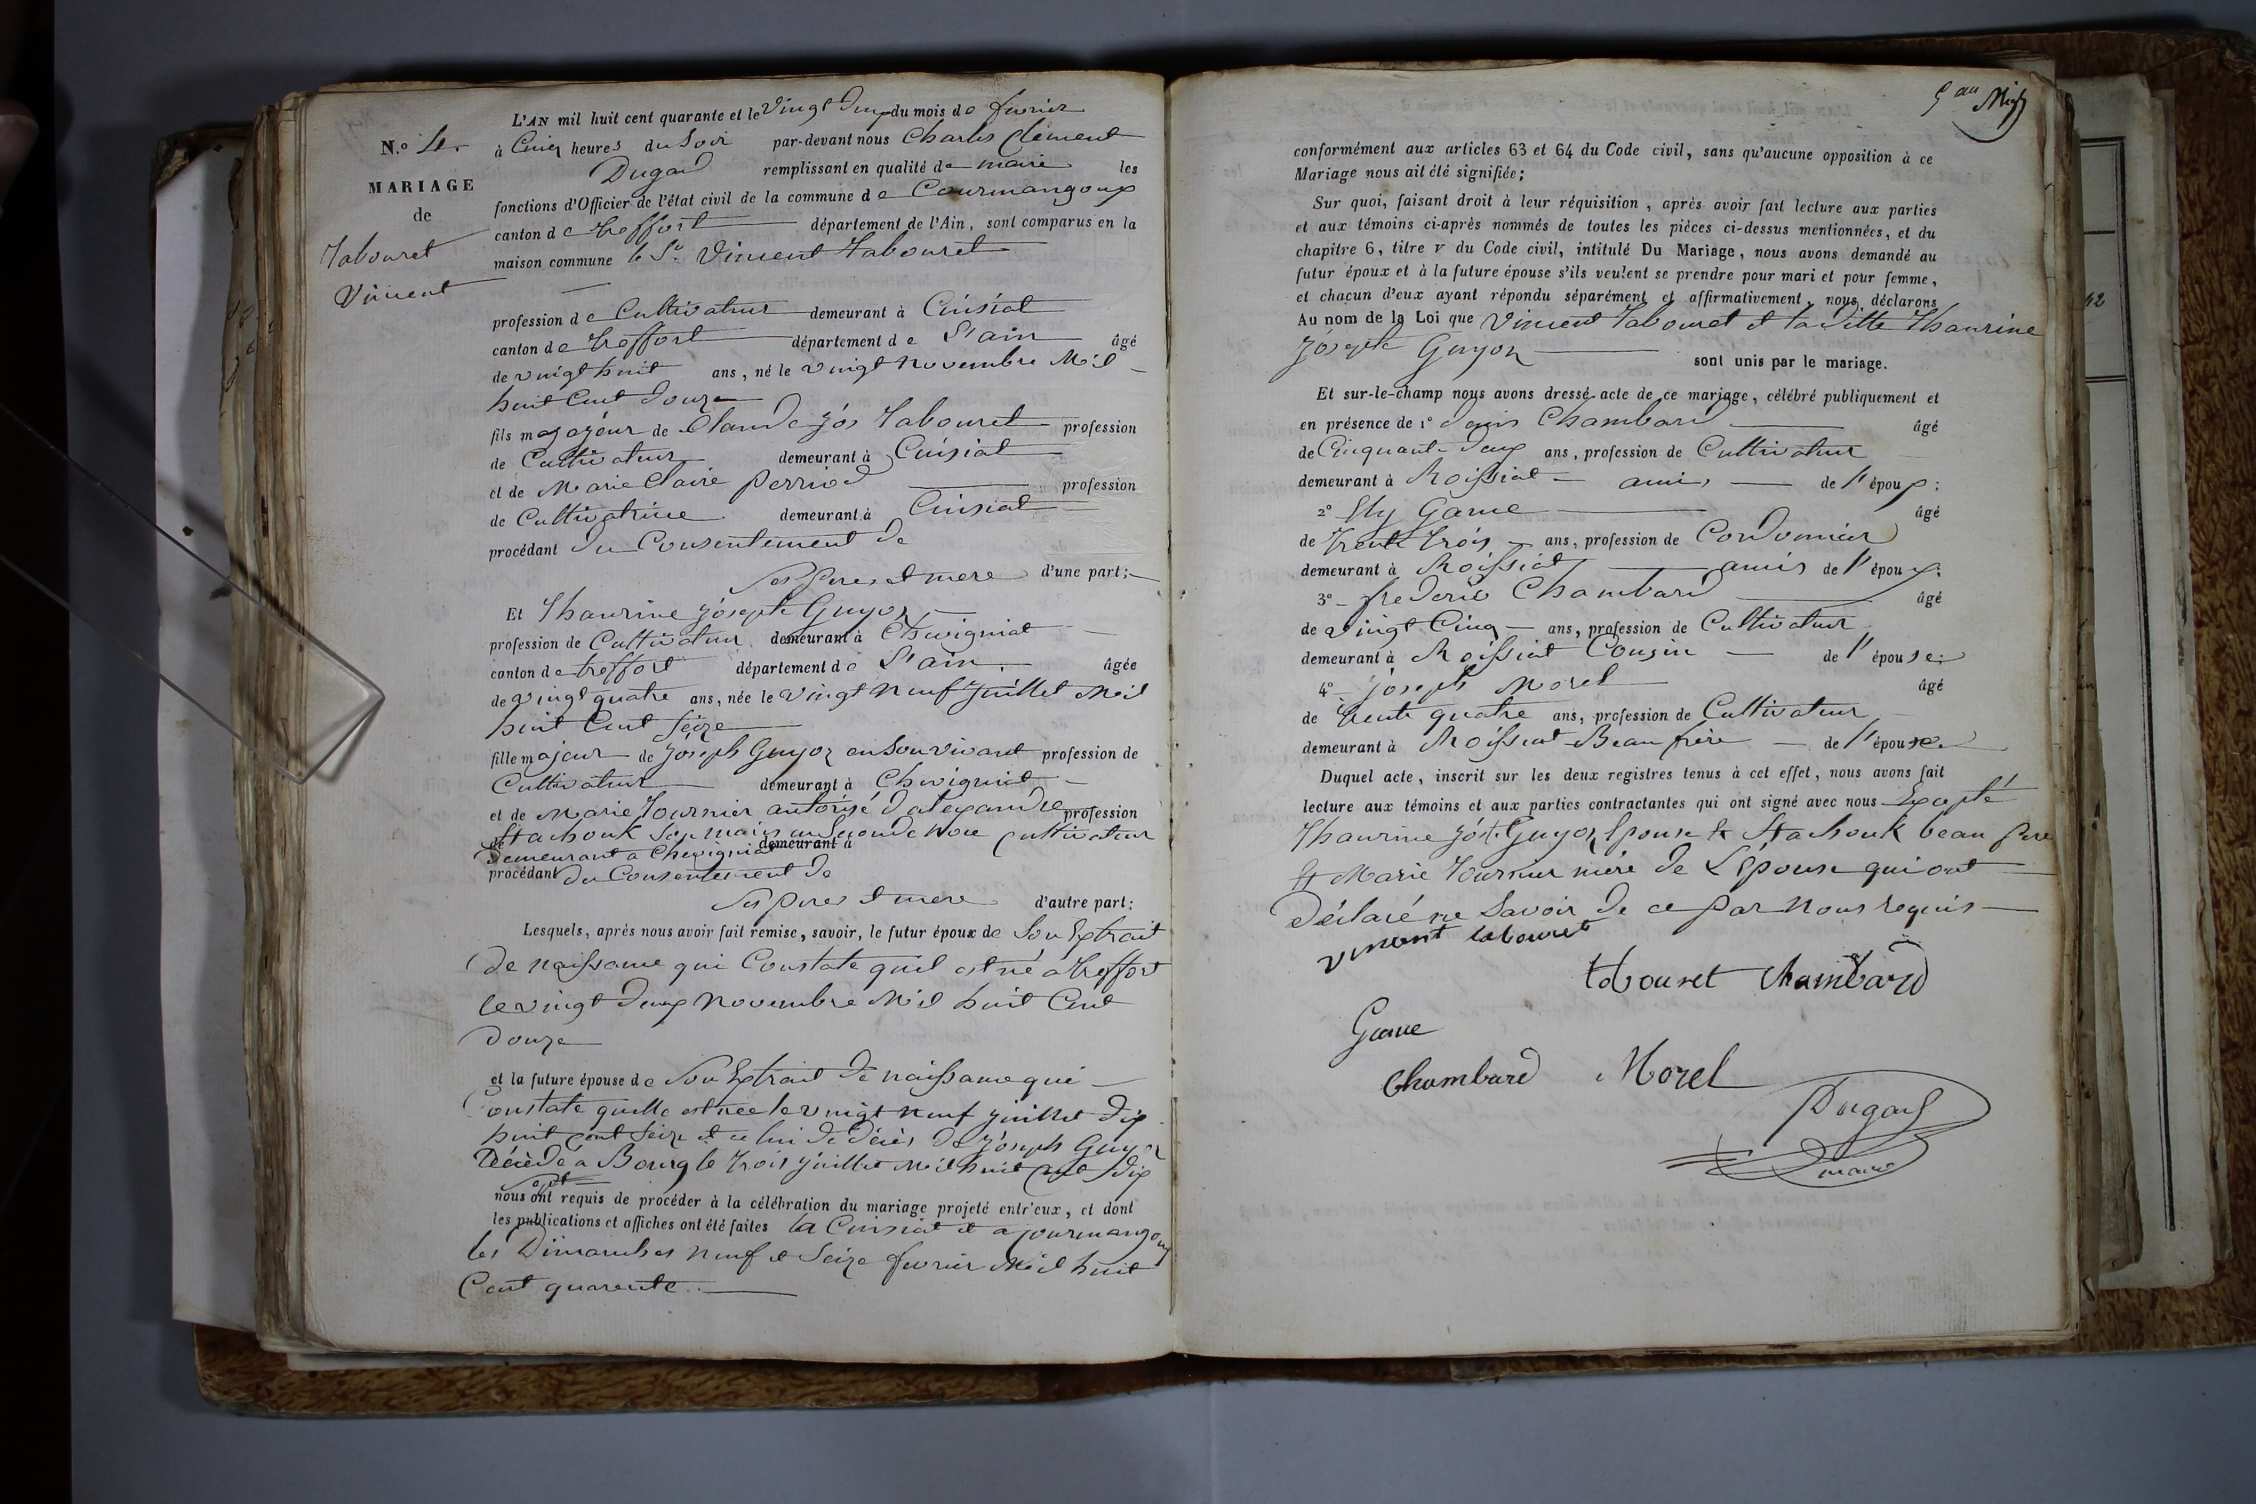 N.o 4.
MARIAGE
de
Tabouret
Vincent
L'AN mil huit cent quarante et le Vingt Deux du mois de fevrier
à Cinq heures du Soir par-devant nous Charles Clément
Dugad remplissant en qualité de maire les
fonctions d'Officier de l'état civil de la commune de Courmangoux
canton de treffort département de l'Ain, sont comparus en la
maison commune le Sr Vincent Tabouret
profession de Cultivateur demeurant à Cuisiat
canton de treffort département de l'ain âgé
de vingt huit ans, né le vingt novembre Mil
huit Cent douze
fils majojeur de Claude Jos Tabouret profession
de Cultivateur demeurant à Cuisiat
et de Marie Claire Perriod profession
de Cultivatrice demeurant à Cuisiat
procédant du Consentement de
Ses peres et mere d'une part;
Et Thaurine Joseph Guyon
profession de Cultivateur demeurant à Chevigniat
canton de treffort département de l'ain âgée
de vingt quatre ans, née le vingt Neuf Juillet Mil
huit Cent Seize
fille majeur de Joseph Guyon en Son vivant profession de
Cultivateur demeurant à Chevigniat
et de Marie Tournier autorisé d'alexandre profession
de Stachouk Son Maris en Seconde Noce Cultivateur
demeurant a Chevigniat demeurant à
procédant du Consentement de
Ses peres et mere d'autre part:
Lesquels, après nous avoir fait remise, savoir, le futur époux de Son Extrait
de naissance qui Constate quil est né a treffort
le vingt Deux Novembre Mil huit Cent
Douze
et la future épouse de Son Extrait de naissance qui
Constate quelle est née le vingt Neuf juillet dix
huit cent Seize et celui de décès de Joseph Guyon
Décédé a Bourg le trois juillet Mil huit Cent dix
Sept
nous ont requis de procéder à la célébration du mariage projeté entr'eux, et dont
les publications et affiches ont été faites a Cuisiat et a Courmangoux
les Dimanches Neuf et Seize fevrier Mil huit
Cent quarente
conformément aux articles 63 et 64 du Code civil, sans qu'aucune opposition à ce
Mariage nous ait été signifiée;
Sur quoi, faisant droit à leur réquisition, après avoir fait lecture aux parties
et aux témoins ci-après nommés de toutes les pièces ci-dessus mentionnées, et du
chapitre 6, titre v du Code civil, intitulé Du Mariage, nous avons demandé au
futur époux et à la future épouse s'ils veulent se prendre pour mari et pour femme,
et chacun d'eux ayant répondu séparément et affirmativement, nous déclarons
Au nom de la Loi que Vincent Tabouret et la ditte Thaurine
Joseph Guyon sont unis par le mariage.
Et sur-le-champ nous avons dressé acte de ce mariage, célébré publiquement et
en présence de 1° Denis Chambard âgé
de Cinquante Deux ans, profession de Cultivateur
demeurant à Roissiat amis de l'époux:
2° Ely Garne âgé
de Trente Trois ans, profession de Cordonnier
demeurant à Roissiat amis de l'époux:
3° frederic Chambard âgé
de vingt Cinq ans, profession de Cultivateur
demeurant à Roissiat Cousin de l'épouse:
4° Joseph Morel âgé
de trente quatre ans, profession de Cultivateur
demeurant à Roissiat Beau frère de l'épouse
Duquel acte, inscrit sur les deux registres tenus à cet effet, nous avons fait
lecture aux témoins et aux parties contractantes qui ont signé avec nous Excepté
Thaurine Jos. Guyon Epouse et Stachouk beau pere
et Marie Tournier mére de L'Epouse qui ont
Déclaré ne Savoir de ce par Nous requis
vincent tabouret
tabouret Chambard
Garne
Chambard Morel
Dugad
maire